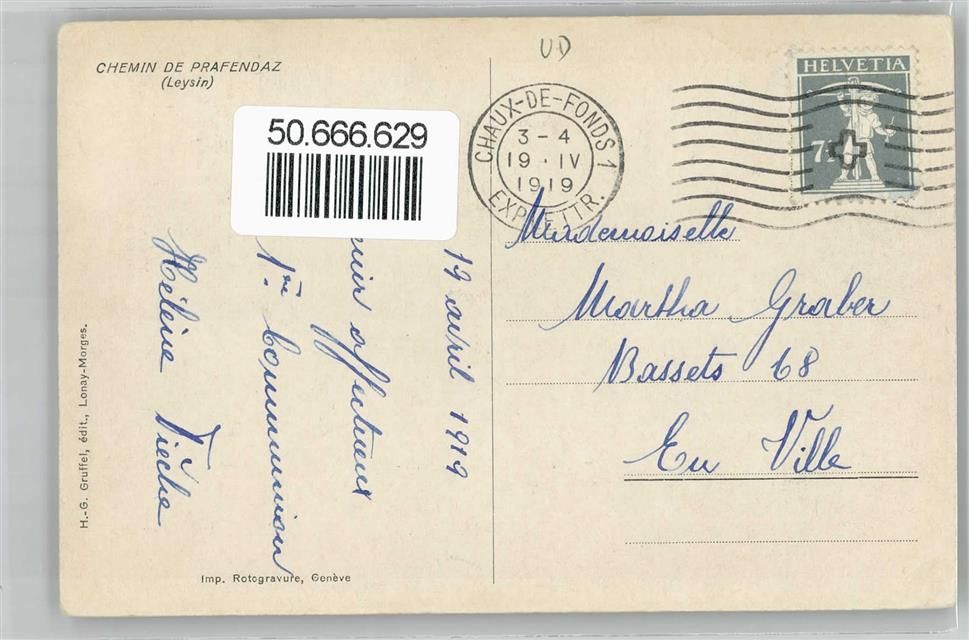 CHEMIN DE PRAFENDAZ
(Leysin)
50.666.629
UD
CHAUX-DE-FONDS 1
3-4
19 · IV
1919
HELVETIA
7½
19 avril 1919
affectueux
1ère Communion
Hélène
Mademoiselle
Martha Graber
Bassets 68
En Ville
H.-G. Gruffel, édit., Lonay-Morges.
Imp. Rotogravure, Genève